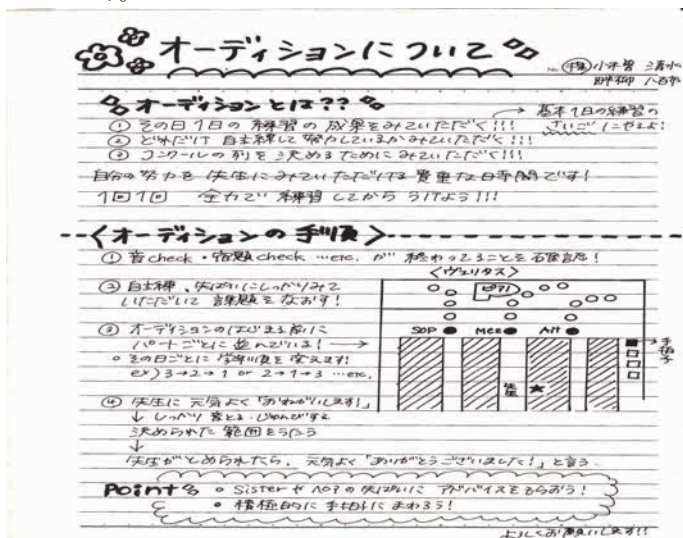 オーディションについて
小木曽 清水
オーディションとは??
基本1日の練習の
さいごにやるよ!
① その日1日の練習の成果をみていただく!!!
② どれだけ自主練して努力しているかみていただく!!!
③ コンクールの列を決めるためにみていただく!!!
自分の努力を先生にみていただける貴重な時間です!
1回1回 全力で練習してからうけよう!!!
<オーディションの手順>
① 音check・宿題check …etc. が 終わってることを確認!
② 自主練、先ぱいにしっかりみて
いただいて課題をなおす!
③ オーディションのはじまる前に
パートごとに並んでいる! →
○ その日ごとに学年順を変えます!
ex) 3→2→1 or 2→1→3 …etc.
<ヴェリタス>
ピアノ
SOP Mez Alt
手拍子
先生 ★
④ 先生に元気よく「おねがいします!」
↓ しっかり音とる・じゅんびする
決められた範囲をうたう
↓
先生がとめられたら、元気よく「ありがとうございました!」と言う
Point ○ Sisterや の先ぱいにアドバイスをもらおう!
○ 積極的に手拍子にまわろう!
よろしくお願いします!!